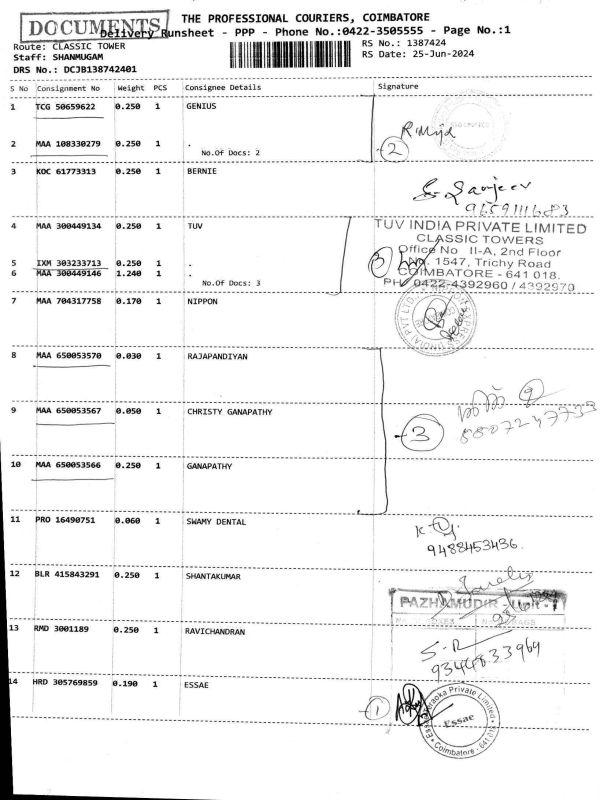 DOCUMENTS
THE PROFESSIONAL COURIERS, COIMBATORE
Delivery Runsheet - PPP - Phone No.:0422-3505555 - Page No.:1
Route: CLASSIC TOWER
RS No.: 1387424
Staff: SHANMUGAM
RS Date: 25-Jun-2024
DRS No.: DCJB138742401
S No Consignment No Weight PCS Consignee Details Signature
1 TCG 50659622 0.250 1 GENIUS
2 MAA 108330279 0.250 1 .
No.Of Docs: 2
2
3 KOC 61773313 0.250 1 BERNIE
S. Sanjeev
9659111683
4 MAA 300449134 0.250 1 TUV
TUV INDIA PRIVATE LIMITED
CLASSIC TOWERS
Office No II-A, 2nd Floor
5 IXM 303233713 0.250 1 .
No. 1547, Trichy Road
6 MAA 300449146 1.240 1 .
COIMBATORE - 641 018.
No.Of Docs: 3
3
PH: 0422-4392960 / 4392970
7 MAA 704317758 0.170 1 NIPPON
8 MAA 650053570 0.030 1 RAJAPANDIYAN
9 MAA 650053567 0.050 1 CHRISTY GANAPATHY
3
8807247733
10 MAA 650053566 0.250 1 GANAPATHY
11 PRO 16490751 0.060 1 SWAMY DENTAL
9488453436.
12 BLR 415843291 0.250 1 SHANTAKUMAR
PAZHAMUDIR - Unit - 1
13 RMD 3001189 0.250 1 RAVICHANDRAN
S-R
9344833969
14 HRD 305769859 0.190 1 ESSAE
1
Private Limited
Essae
Coimbatore - 641 018